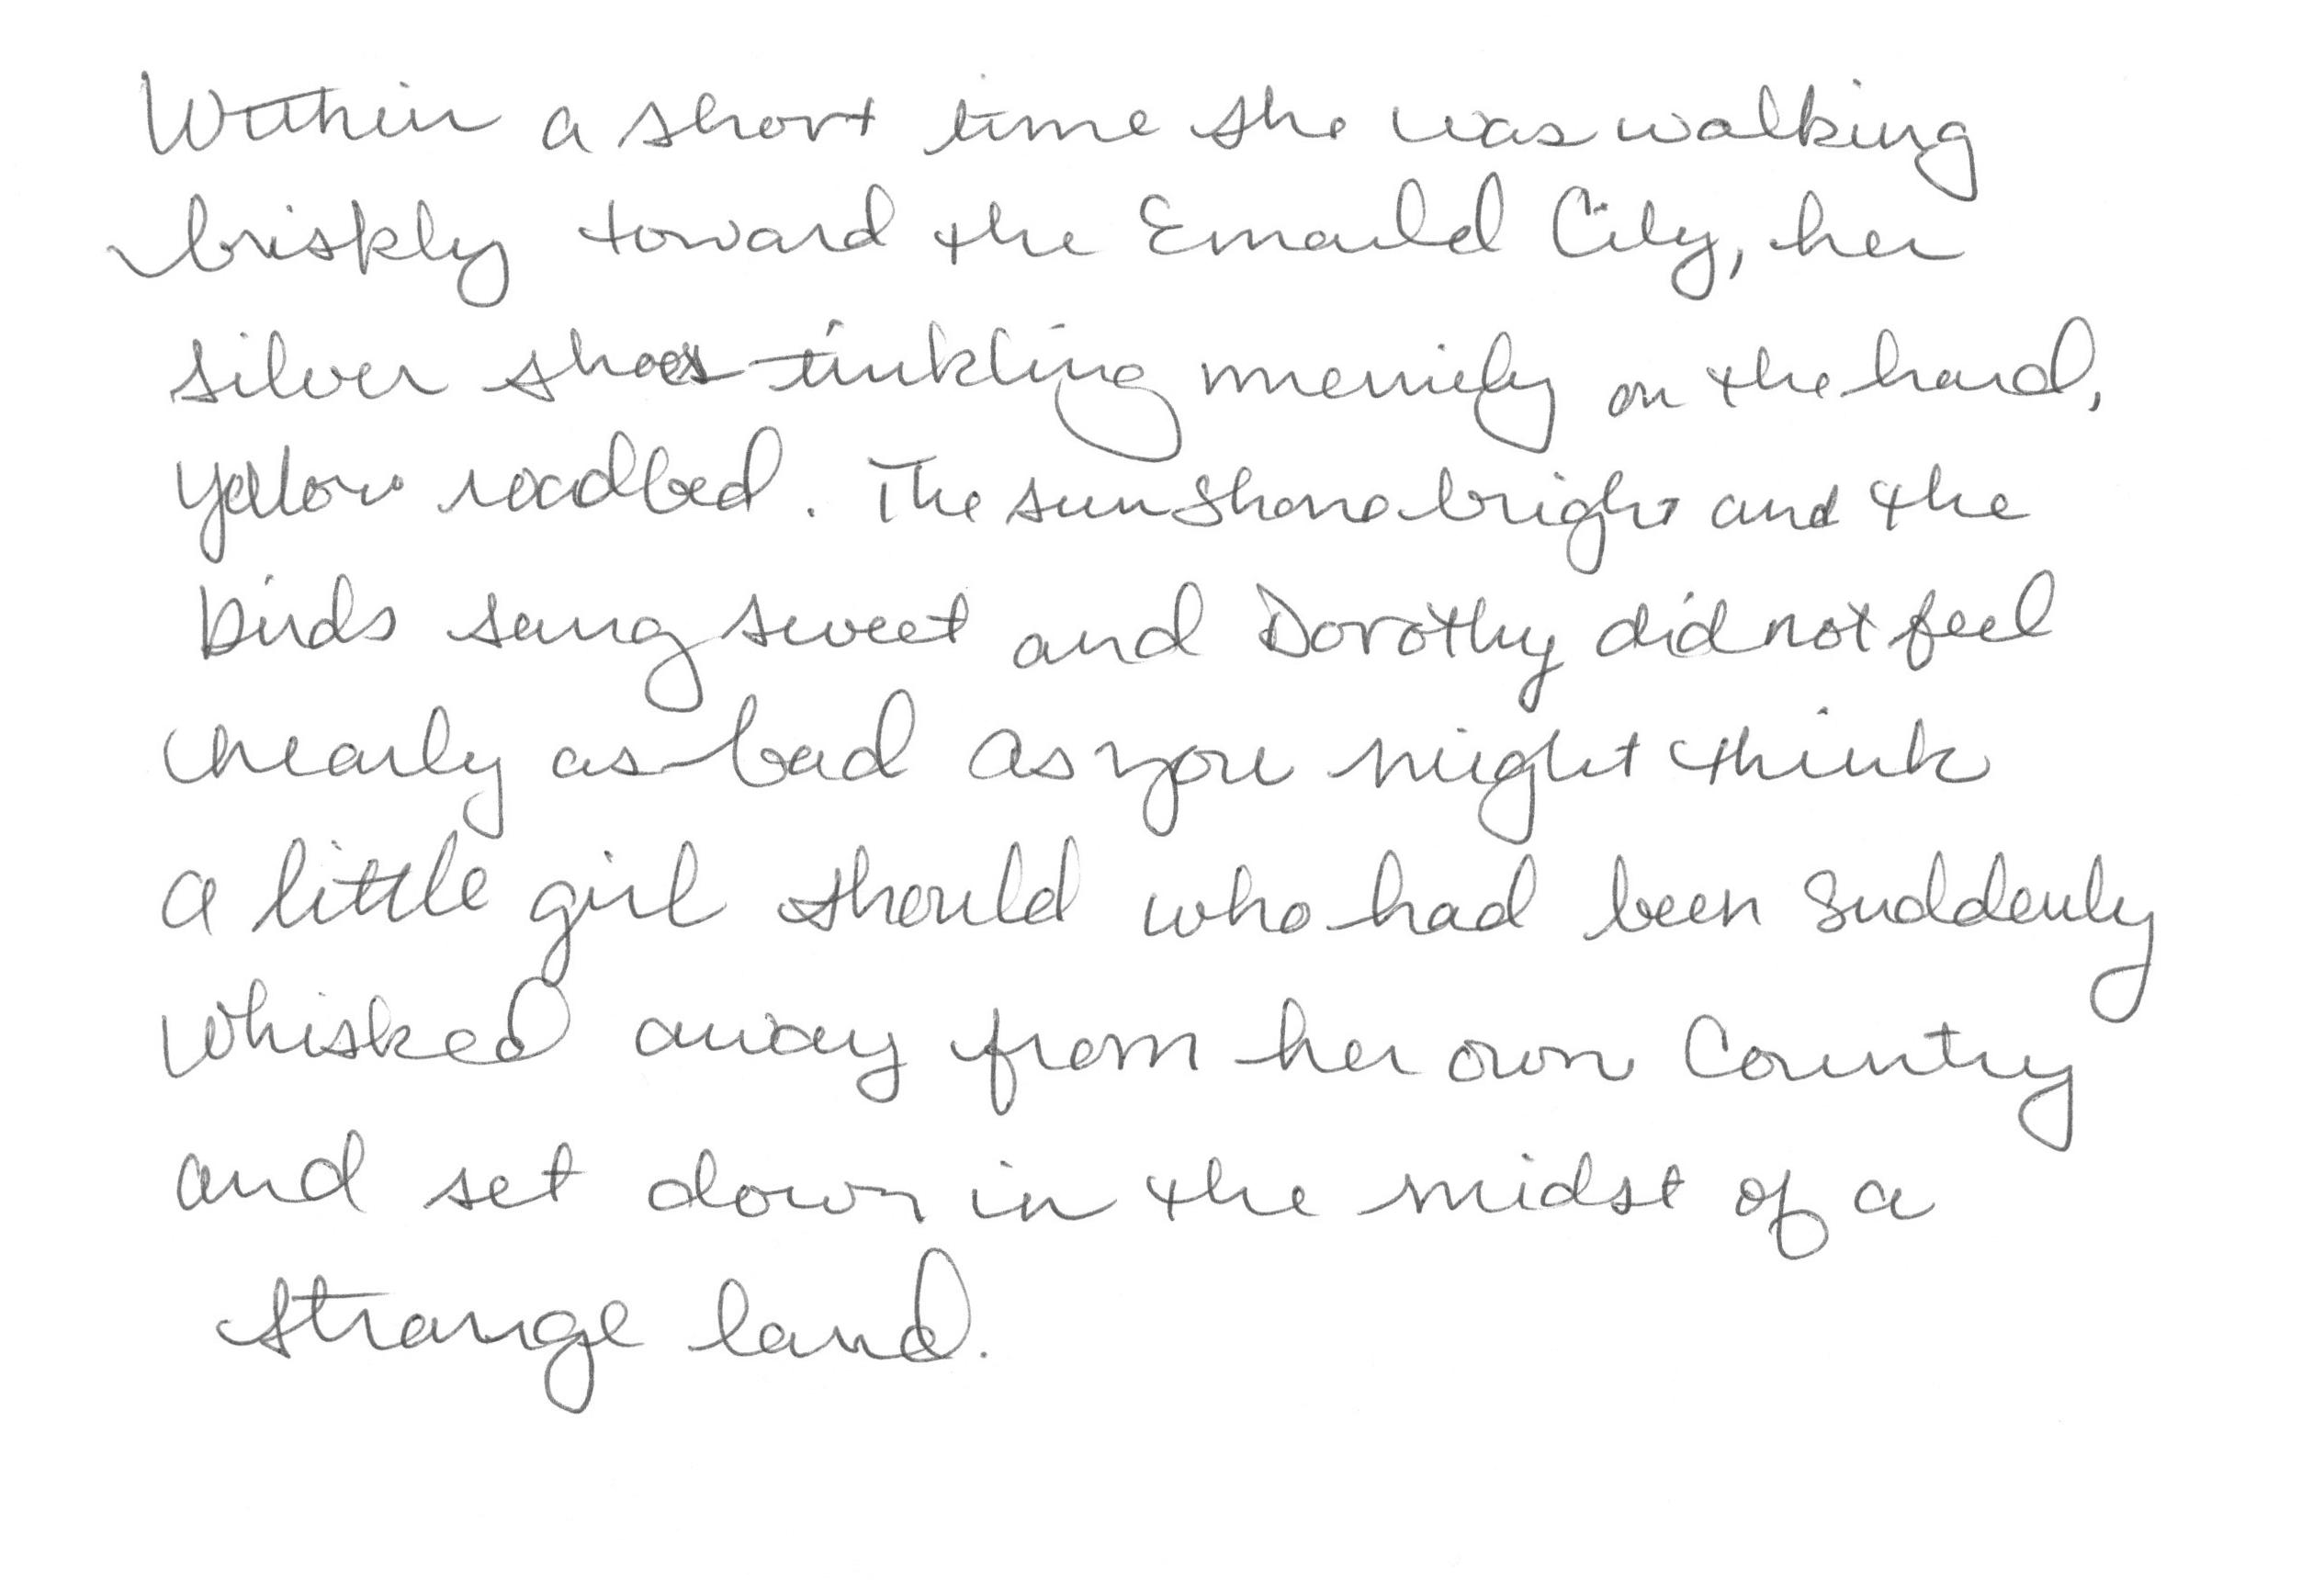 Within a short time she was walking
briskly toward the Emerald City, her
silver shoes tinkling merrily on the hard,
yellow roadbed. The sun shone bright and the
birds sang sweet and Dorothy did not feel
nearly as bad as you might think
a little girl should who had been suddenly
whisked away from her own Country
and set down in the midst of a
strange land.